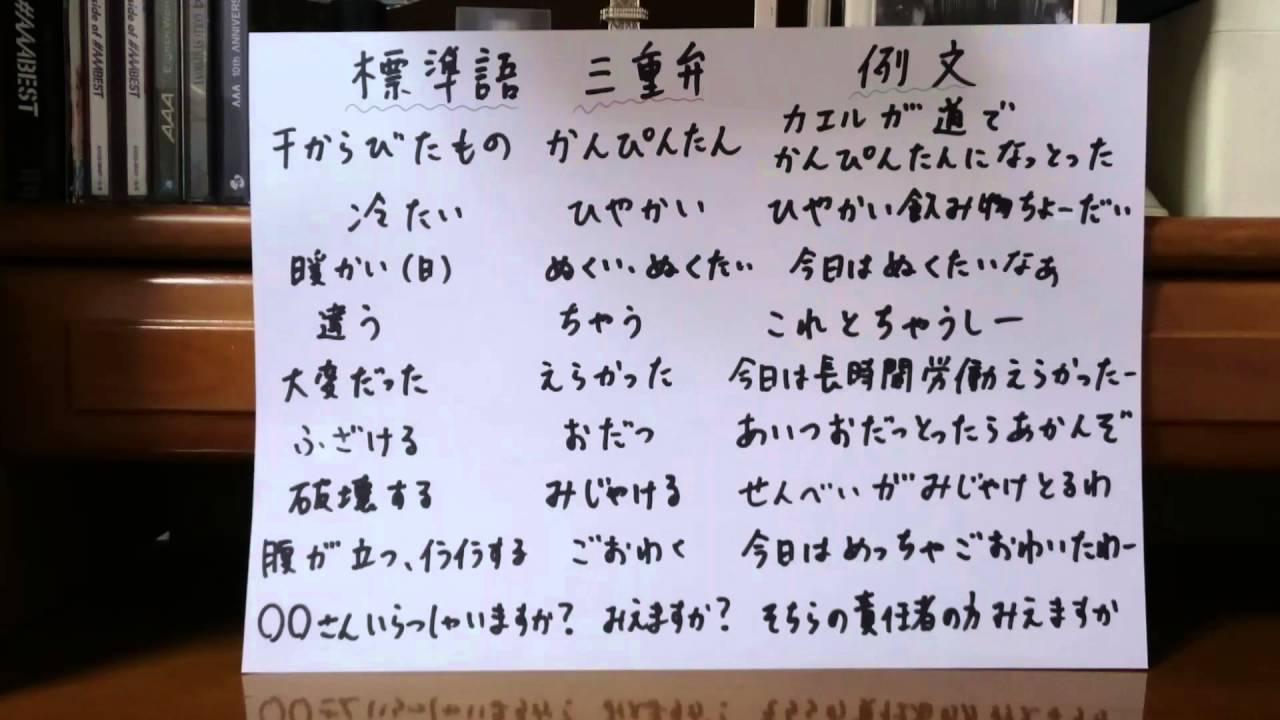 #AAABEST
side of #AAABEST
side of #AAABEST
AAA
AAA 10th ANNIVERS
標準語 三重弁 例文
干からびたもの かんぴんたん カエルが道で
かんぴんたんになっとった
冷たい ひやかい ひやかい飲み物ちょーだい
暖かい(日) ぬくい、ぬくたい 今日はぬくたいなぁ
違う ちゃう これとちゃうしー
大変だった えらかった 今日は長時間労働えらかったー
ふざける おだつ あいつおだっとったらあかんぞ
破壊する みじゃける せんべいがみじゃけとるわ
腹が立つ、イライラする ごおわく 今日はめっちゃごおわいたわー
〇〇さんいらっしゃいますか? みえますか? そちらの責任者の方みえますか